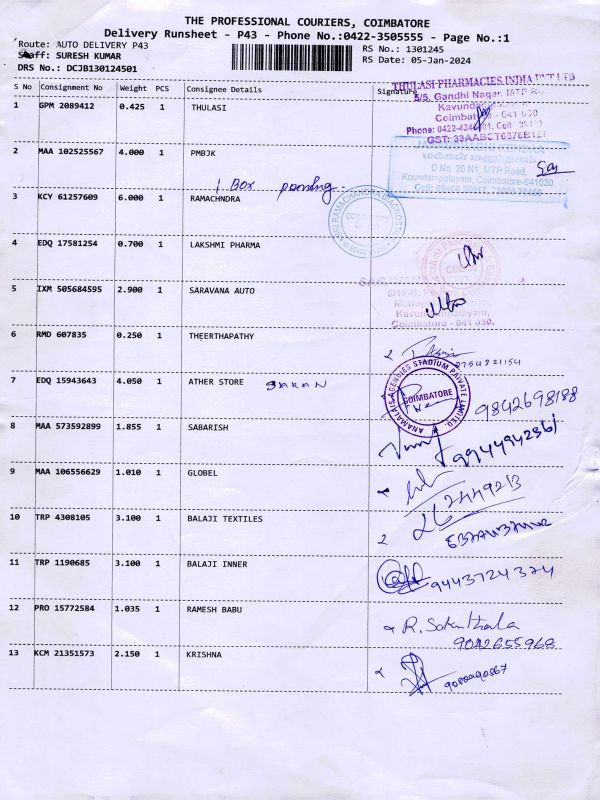 THE PROFESSIONAL COURIERS, COIMBATORE
Delivery Runsheet - P43 - Phone No.:0422-3505555 - Page No.:1
Route: AUTO DELIVERY P43
RS No.: 1301245
Staff: SURESH KUMAR
RS Date: 05-Jan-2024
DRS No.: DCJB130124501
S No Consignment No Weight PCS Consignee Details Signature
THULASI PHARMACIES INDIA PVT LTD
5/5, Gandhi Nagar, MTP
1 GPM 2089412 0.425 1 THULASI
Coimbatore - 641 030
Phone: 0422-
GST: 33AABCT6876B1Z
2 MAA 102525567 4.000 1 PMBJK
D.No. 25 N1, MTP Road,
Koundampalayam, Coimbatore-641030.
1 Box pending
3 KCY 61257609 6.000 1 RAMACHNDRA
4 EDQ 17581254 0.700 1 LAKSHMI PHARMA
5 IXM 505684595 2.900 1 SARAVANA AUTO
Coimbatore - 641 030.
6 RMD 607835 0.250 1 THEERTHAPATHY
7 EDQ 15943643 4.050 1 ATHER STORE SARAN
ANAMALAIS AGENCIES STADIUM PRIVATE LIMITED.
COIMBATORE
9842698188
8 MAA 573592899 1.855 1 SABARISH
9944942361
9 MAA 106556629 1.010 1 GLOBEL
10 TRP 4308105 3.100 1 BALAJI TEXTILES
11 TRP 1190685 3.100 1 BALAJI INNER
9443724374
12 PRO 15772584 1.035 1 RAMESH BABU
R. Sakunthala
9042655968
13 KCM 21351573 2.150 1 KRISHNA